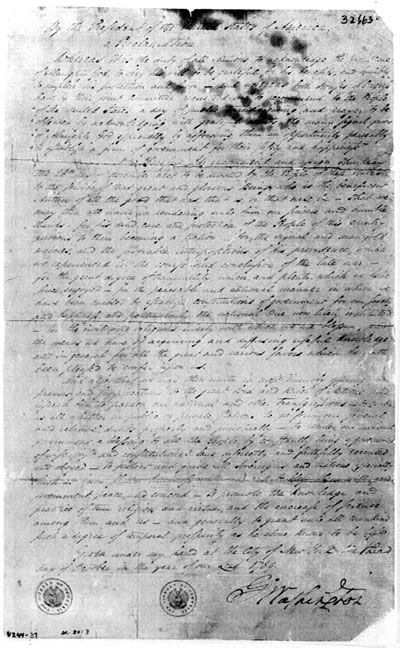 32663
By the President of the United States of America
a Proclamation
Whereas it is the duty of all Nations to acknowledge the providence
of Almighty God, to obey his will, to be grateful for his benefits, and humbly
to implore his protection and favor
have by their joint Committee requested me to recommend to the People
of the United States a day of public thanksgiving and prayer to be
observed by acknowledging with grateful hearts the many signal favors
of Almighty God, especially by affording them an opportunity peaceably
to establish a form of government for their safety and happiness.
Now therefore I do recommend and assign Thursday
the 26th day of November next to be devoted by the People of these States
to the service of that great and glorious Being, who is the beneficent
Author of all the good that was, that is, or that will be – That we
may then all unite in rendering unto him our sincere and humble
thanks – for his kind care and protection of the People of this country
previous to their becoming a Nation – for the signal and manifold
mercies, and the favorable interpositions of his providence, which
we experienced in the course and conclusion of the late war –
for the great degree of tranquillity, union, and plenty, which we have
since enjoyed – for the peaceable and rational manner in which we
have been enabled to establish constitutions of government for our safety
and happiness, and particularly the national One now lately instituted
– for the civil and religious liberty with which we are blessed, and
the means we have of acquiring and diffusing useful knowledge
and in general for all the great and various favors which he hath
been pleased to confer upon us.
And also that we may then unite in most humbly offering our
prayers and supplications to the great Lord and Ruler of Nations and
beseech him to pardon our national and other transgressions – to enable
us all, whether in public or private stations, to perform our several
and relative duties properly and punctually – to render our national
government a blessing to all the People, by constantly being a government
of wise, just and constitutional laws, discreetly and faithfully executed
and obeyed – to protect and guide all Sovereigns and Nations (especially
such as have shown kindness unto us) and to bless them with good
government, peace, and concord – To promote the knowledge and
practice of true religion and virtue, and the encrease of science
among them and us – and generally to grant unto all mankind
such a degree of temporal prosperity as he alone knows to be best.
Given under my hand at the City of New York the third
day of October in the year of our Lord 1789.
Go Washington